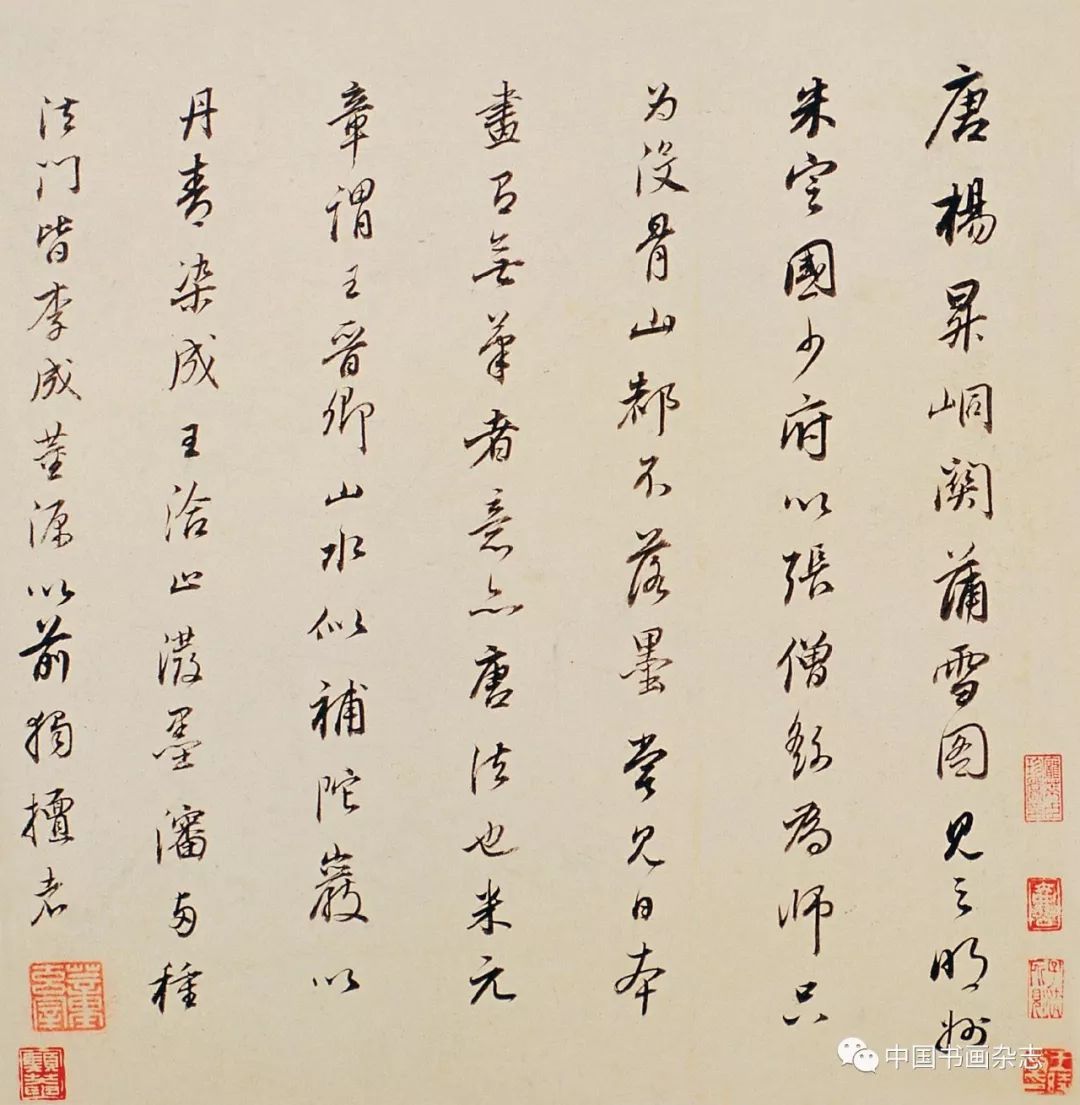 唐楊昇峒関蒲雪图見之明州
朱定國少府以張僧繇為师只
为没骨山都不落墨嘗見日本
畫有無筆者意亦唐法也米元
章謂王晋卿山水似補陀巖以
丹青染成王洽止潑墨瀋两種
法门皆李成董源以前獨擅者
中国书画杂志